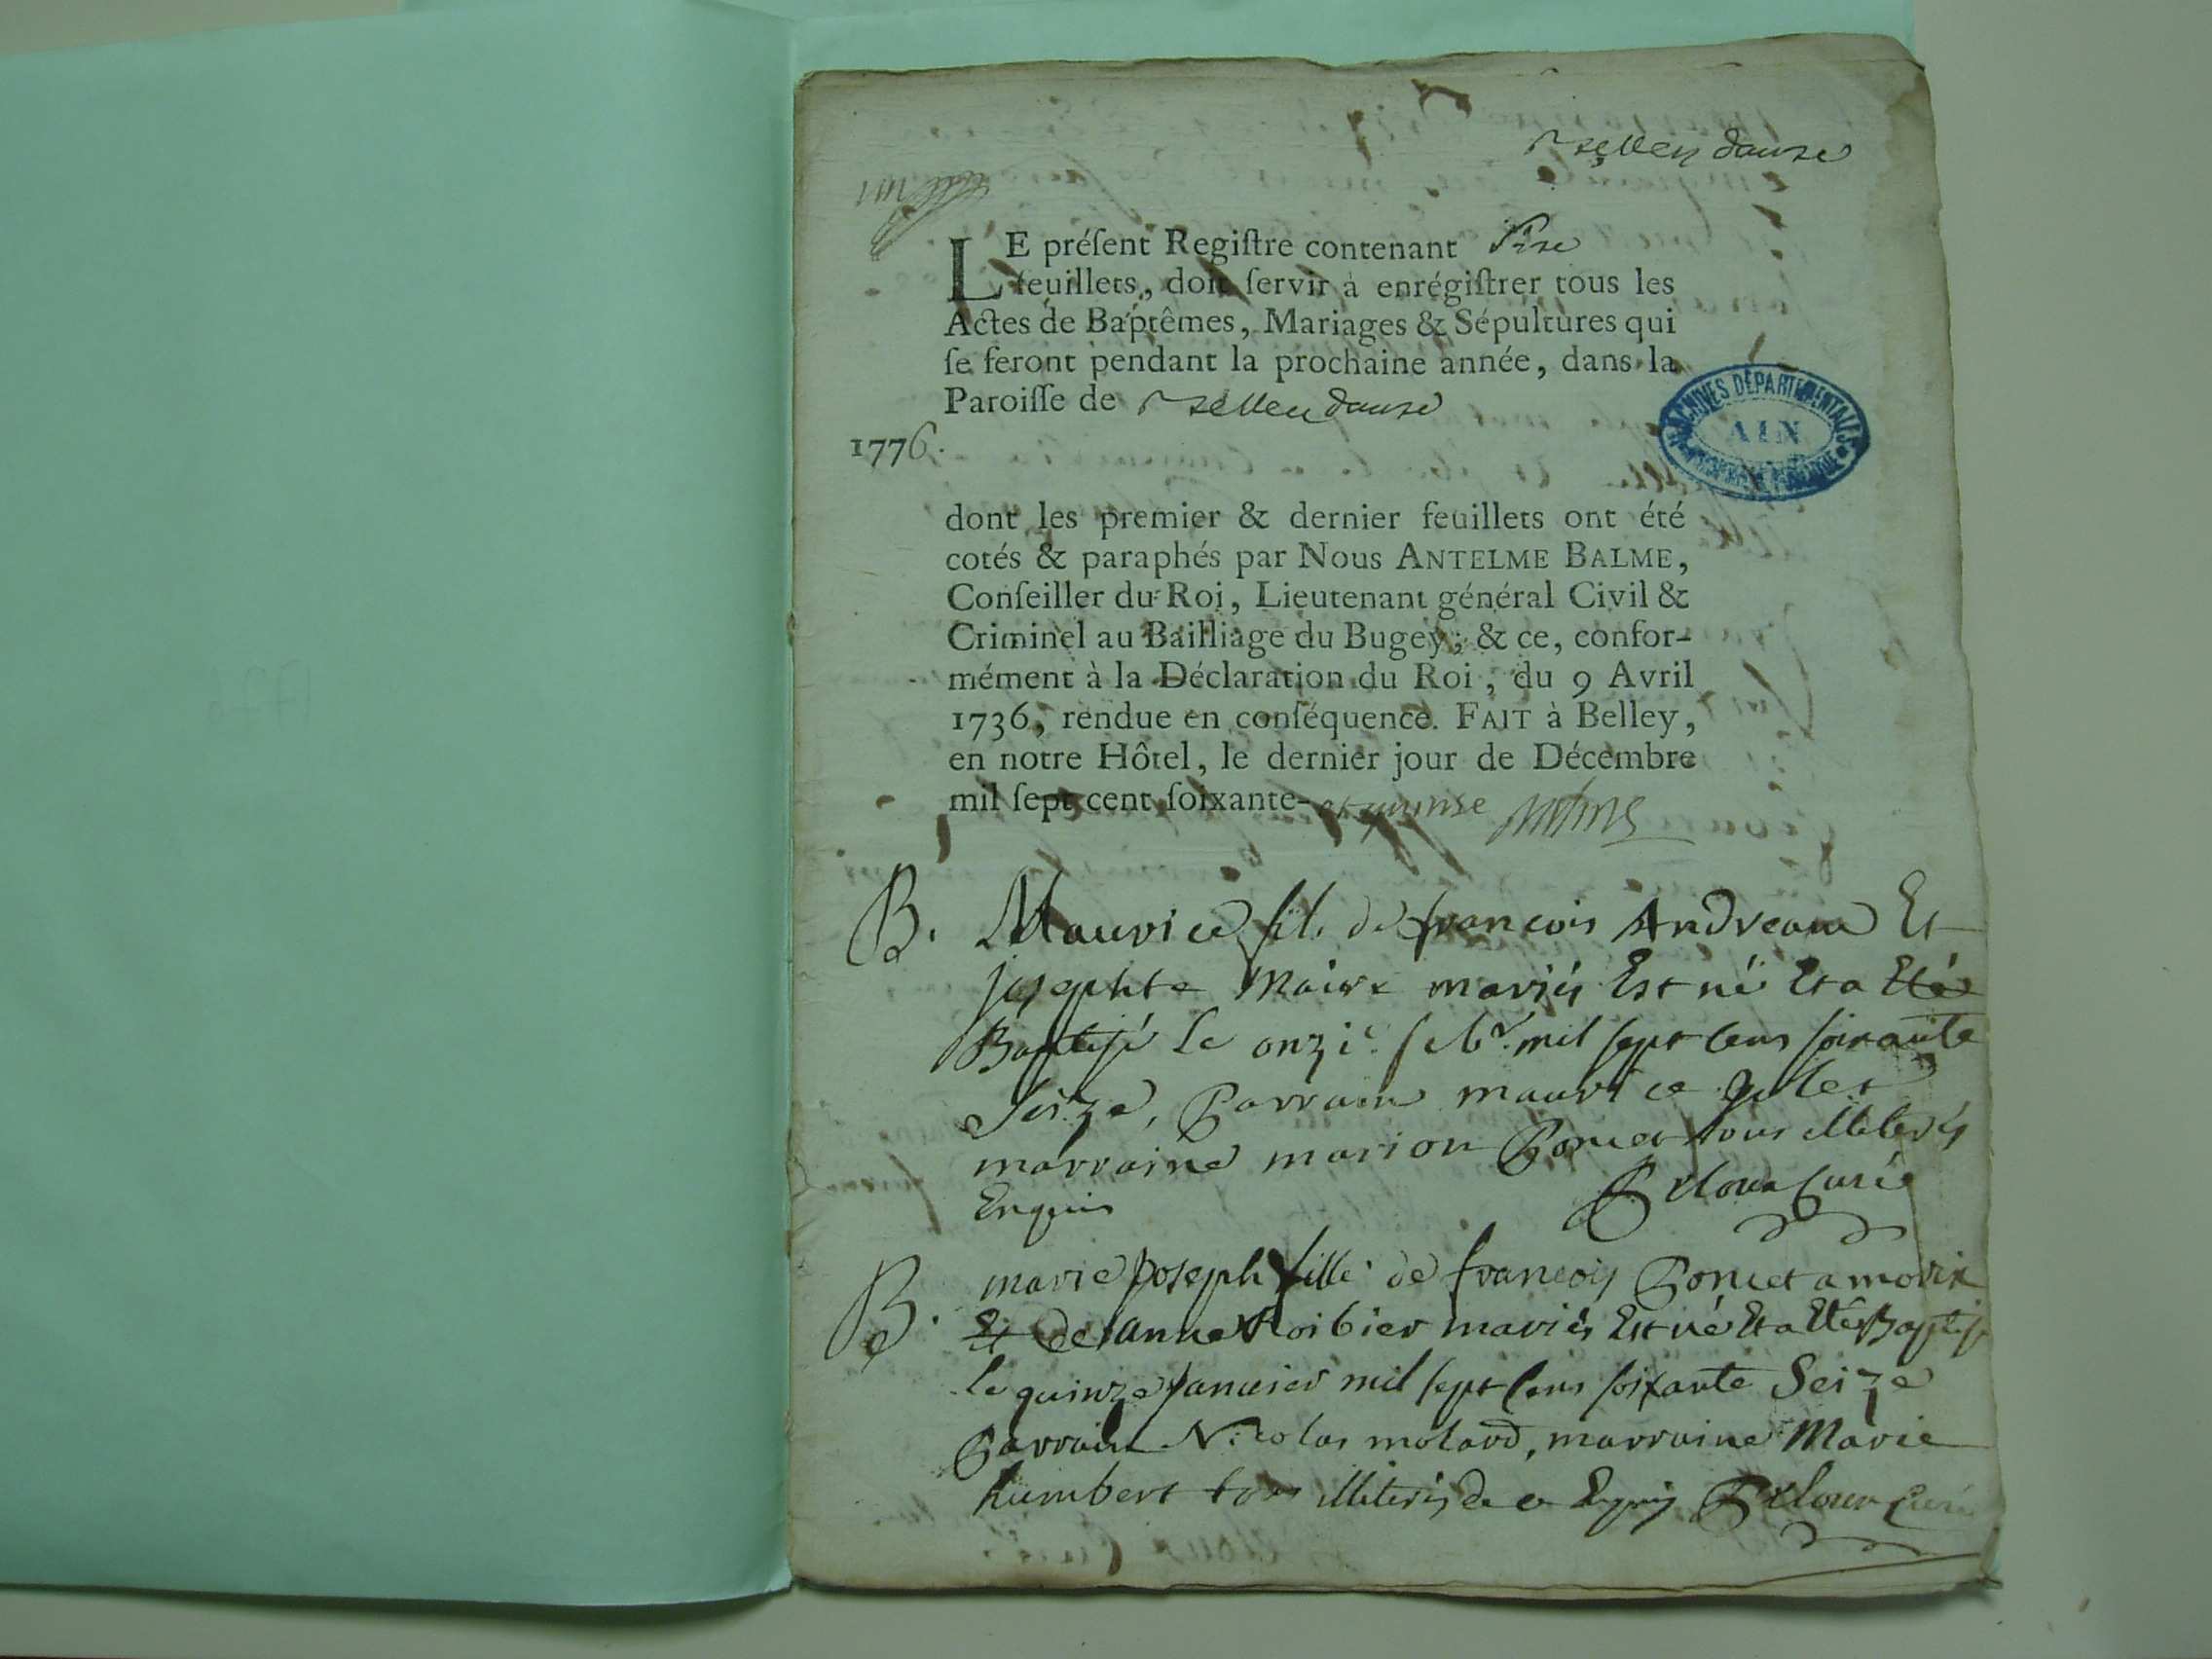 LE préſent Regiſtre contenant
feuillets, doit ſervir à enrégiſtrer tous les
Actes de Baptêmes, Mariages & Sépultures qui
ſe feront pendant la prochaine année, dans la
Paroiſſe de
ARCHIVES DÉPARTEMENTALES
AIN
1776.
dont les premier & dernier feuillets ont été
cotés & paraphés par Nous ANTELME BALME,
Conſeiller du Roi, Lieutenant général Civil &
Criminel au Bailliage du Bugey; & ce, confor-
mément à la Déclaration du Roi, du 9 Avril
1736, rendue en conſéquence. FAIT à Belley,
en notre Hôtel, le dernier jour de Décembre
mil ſept cent ſoixante- et quinse
B. Maurice fils de francois Et
josephte maire mariés Est né Et a Eté
Baptisé le onzie. febr. mil sept cens soixante
Seize, Parrain maurice
marraine marion Poncet tous illiterés
Enquis Curé
B. marie joseph fille de francois Poncet a
Et de anne Roibier mariés Est né Et a Eté Baptisé
le quinze janvier mil sept cens soixante Seize
Parrain Nicolas molard, marraine Marie
humbert tous illiterés de ce Enquis Curé